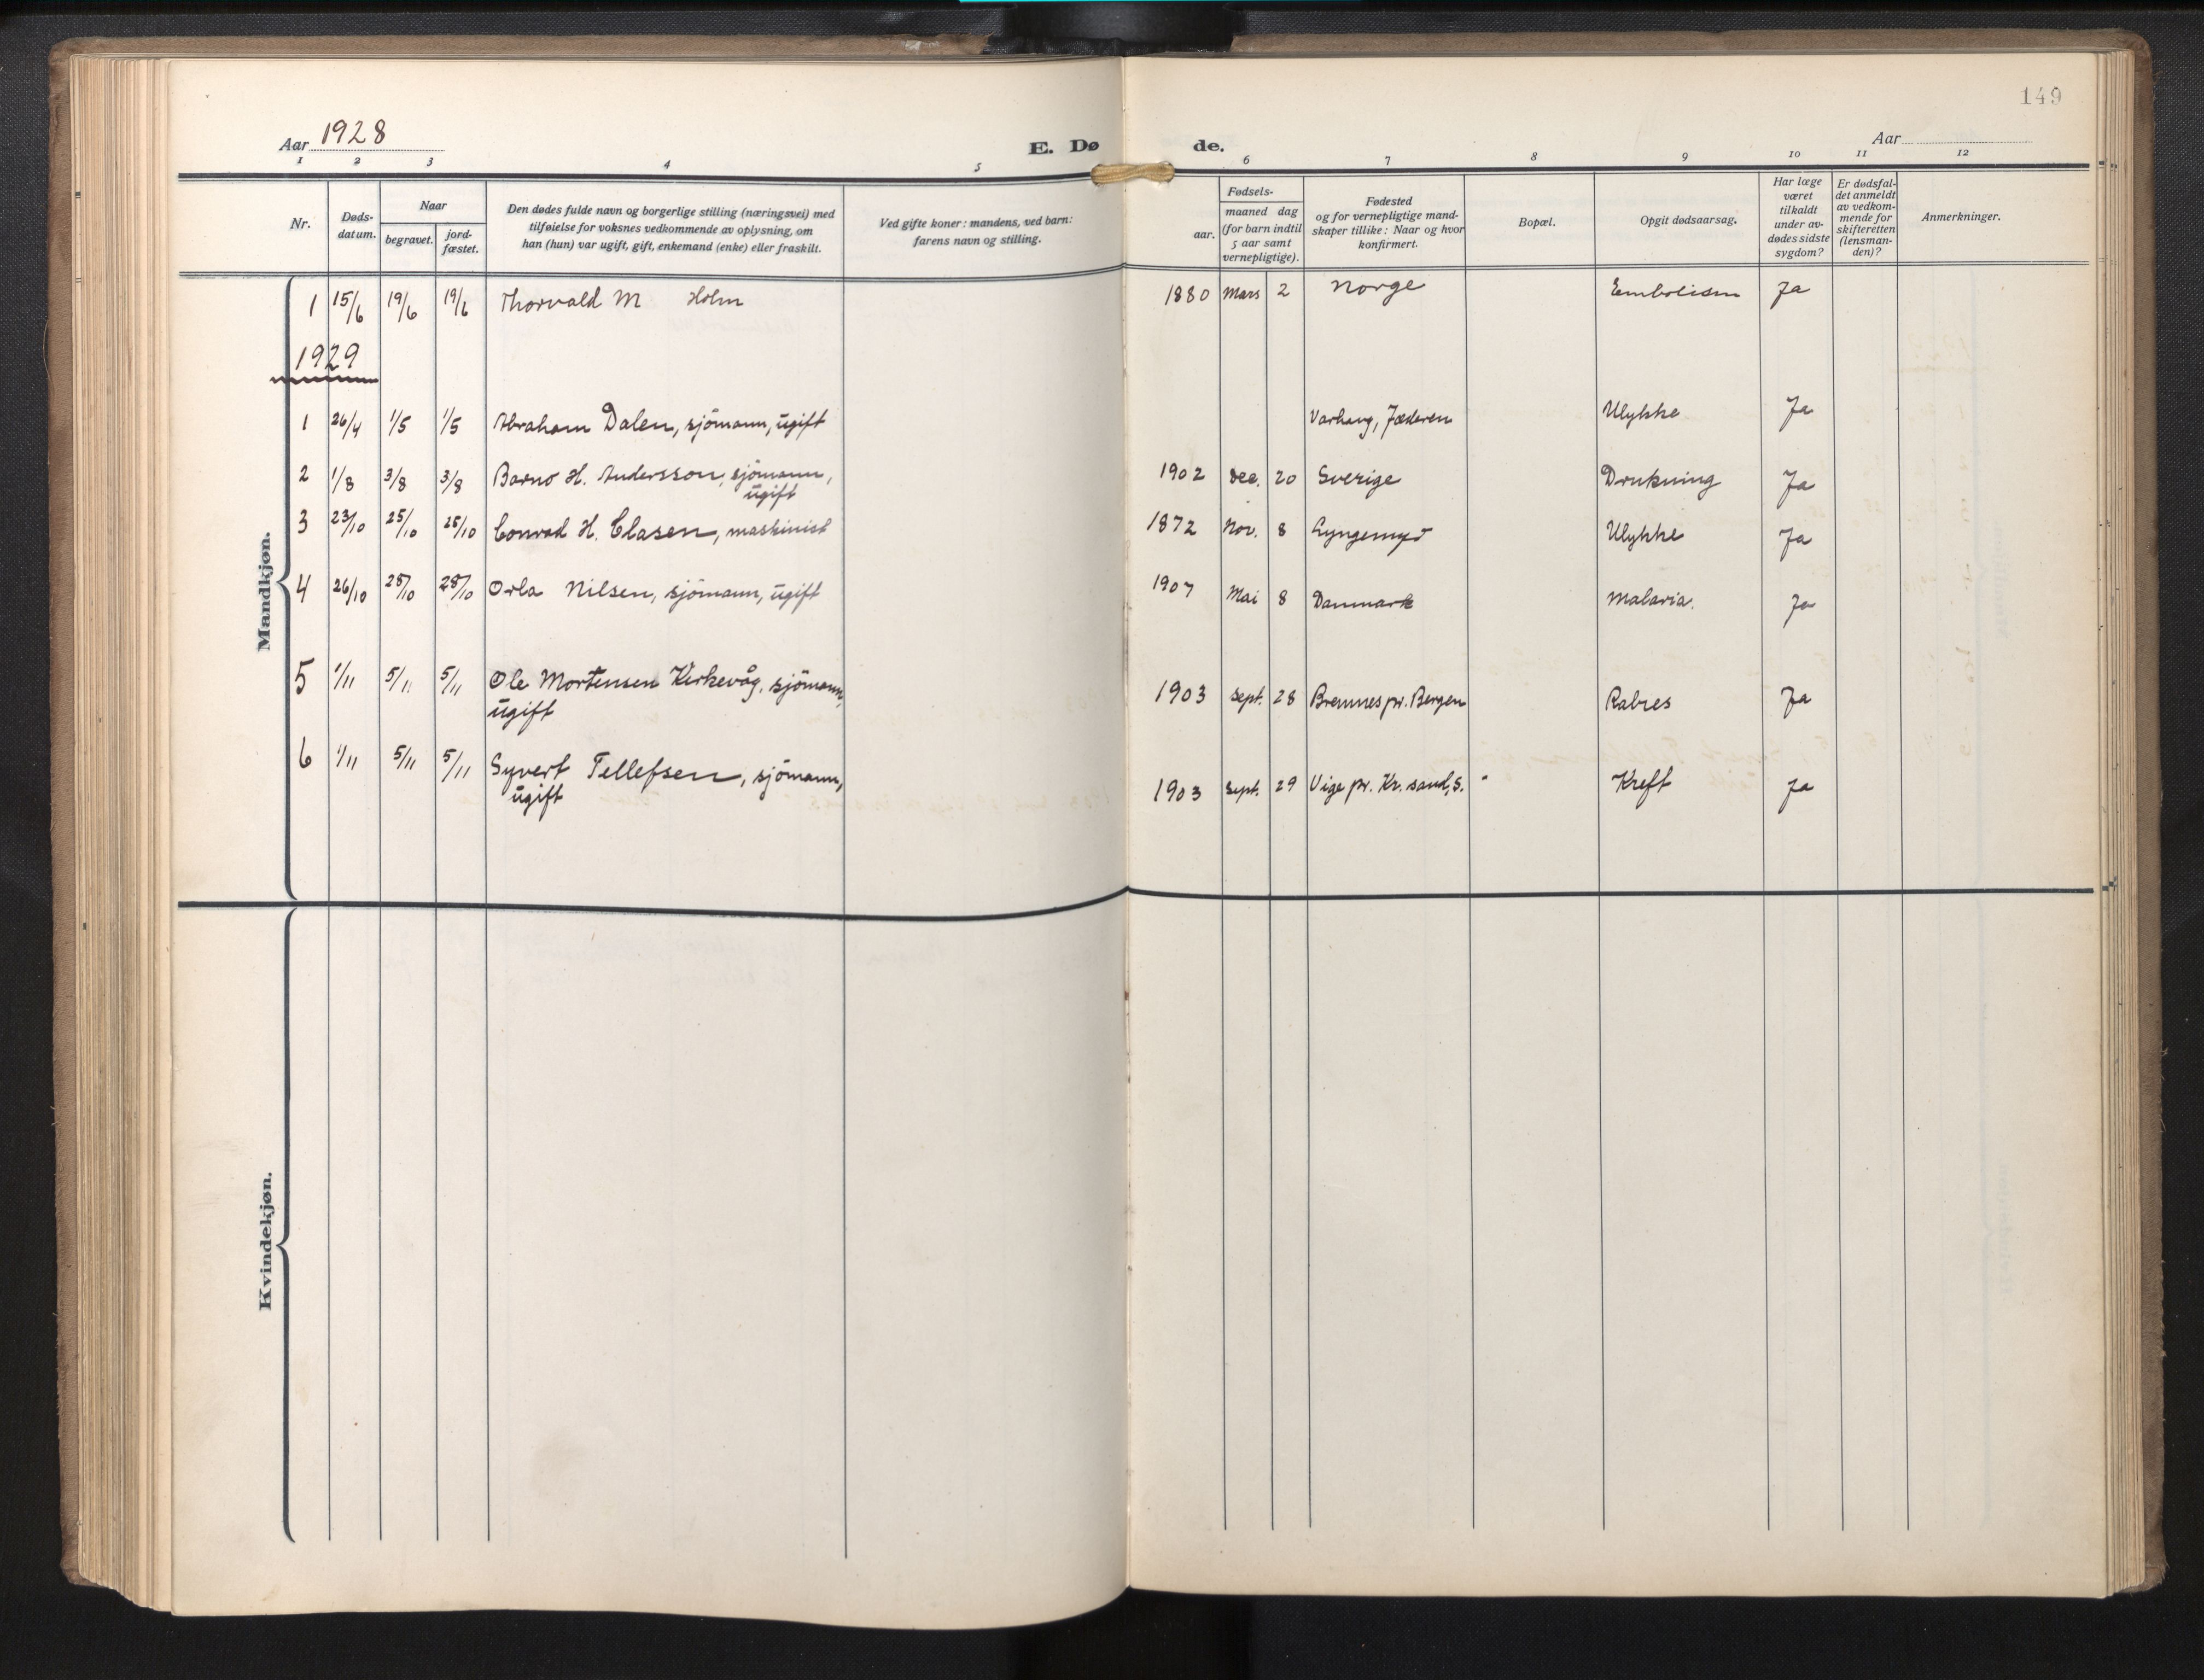 149
Aar 1928
E. Døde.
Aar
1 2 3 4 5 6 7 8 9 10 11 12
Nr.
Døds-
datum.
Naar
begravet.
jord-
fæstet.
Den dødes fulde navn og borgerlige stilling (næringsvei) med
tilføielse for voksnes vedkommende av oplysning, om
han (hun) var ugift, gift, enkemand (enke) eller fraskilt.
Ved gifte koner: mandens, ved barn:
farens navn og stilling.
Fødsels-
aar.
maaned dag
(for barn indtil
5 aar samt
vernepligtige).
Fødested
og for vernepligtige mand-
skaper tillike: Naar og hvor
konfirmert.
Bopæl.
Opgit dødsaarsag.
Har læge
været
tilkaldt
under av-
dødes sidste
sygdom?
Er dødsfal-
det anmeldt
av vedkom-
mende for
skifteretten
(lensman-
den)?
Anmerkninger.
Mandkjøn.
1 15/6 19/6 19/6 Thorvald M Holm 1880 Mars 2 Norge Embolism Ja
1929
1 26/4 1/5 1/5 Abraham Dalen, sjömann, ugift Varhaug, Jæderen Ulykke Ja
2 1/8 3/8 3/8 Barno H. Andersson, sjömann, 1902 Dec. 20 Sverige Drukning Ja
ugift
3 23/10 25/10 25/10 Conrad H. Clasen, maskinist 1872 Nov. 8 Ulykke Ja
4 26/10 28/10 28/10 Orla Nilsen, sjömann, ugift 1907 Mai 8 Danmark Malaria. Ja
5 1/11 5/11 5/11 Ole Mortensen Kirkevåg, sjömann, 1903 Sept. 28 Bremnes pr. Bergen Rabies Ja
ugift
6 1/11 5/11 5/11 Syvert Tellefsen, sjömann, 1903 Sept. 29 Vige pr. Kr. sand, S. Kreft Ja
ugift
Kvindekjøn.